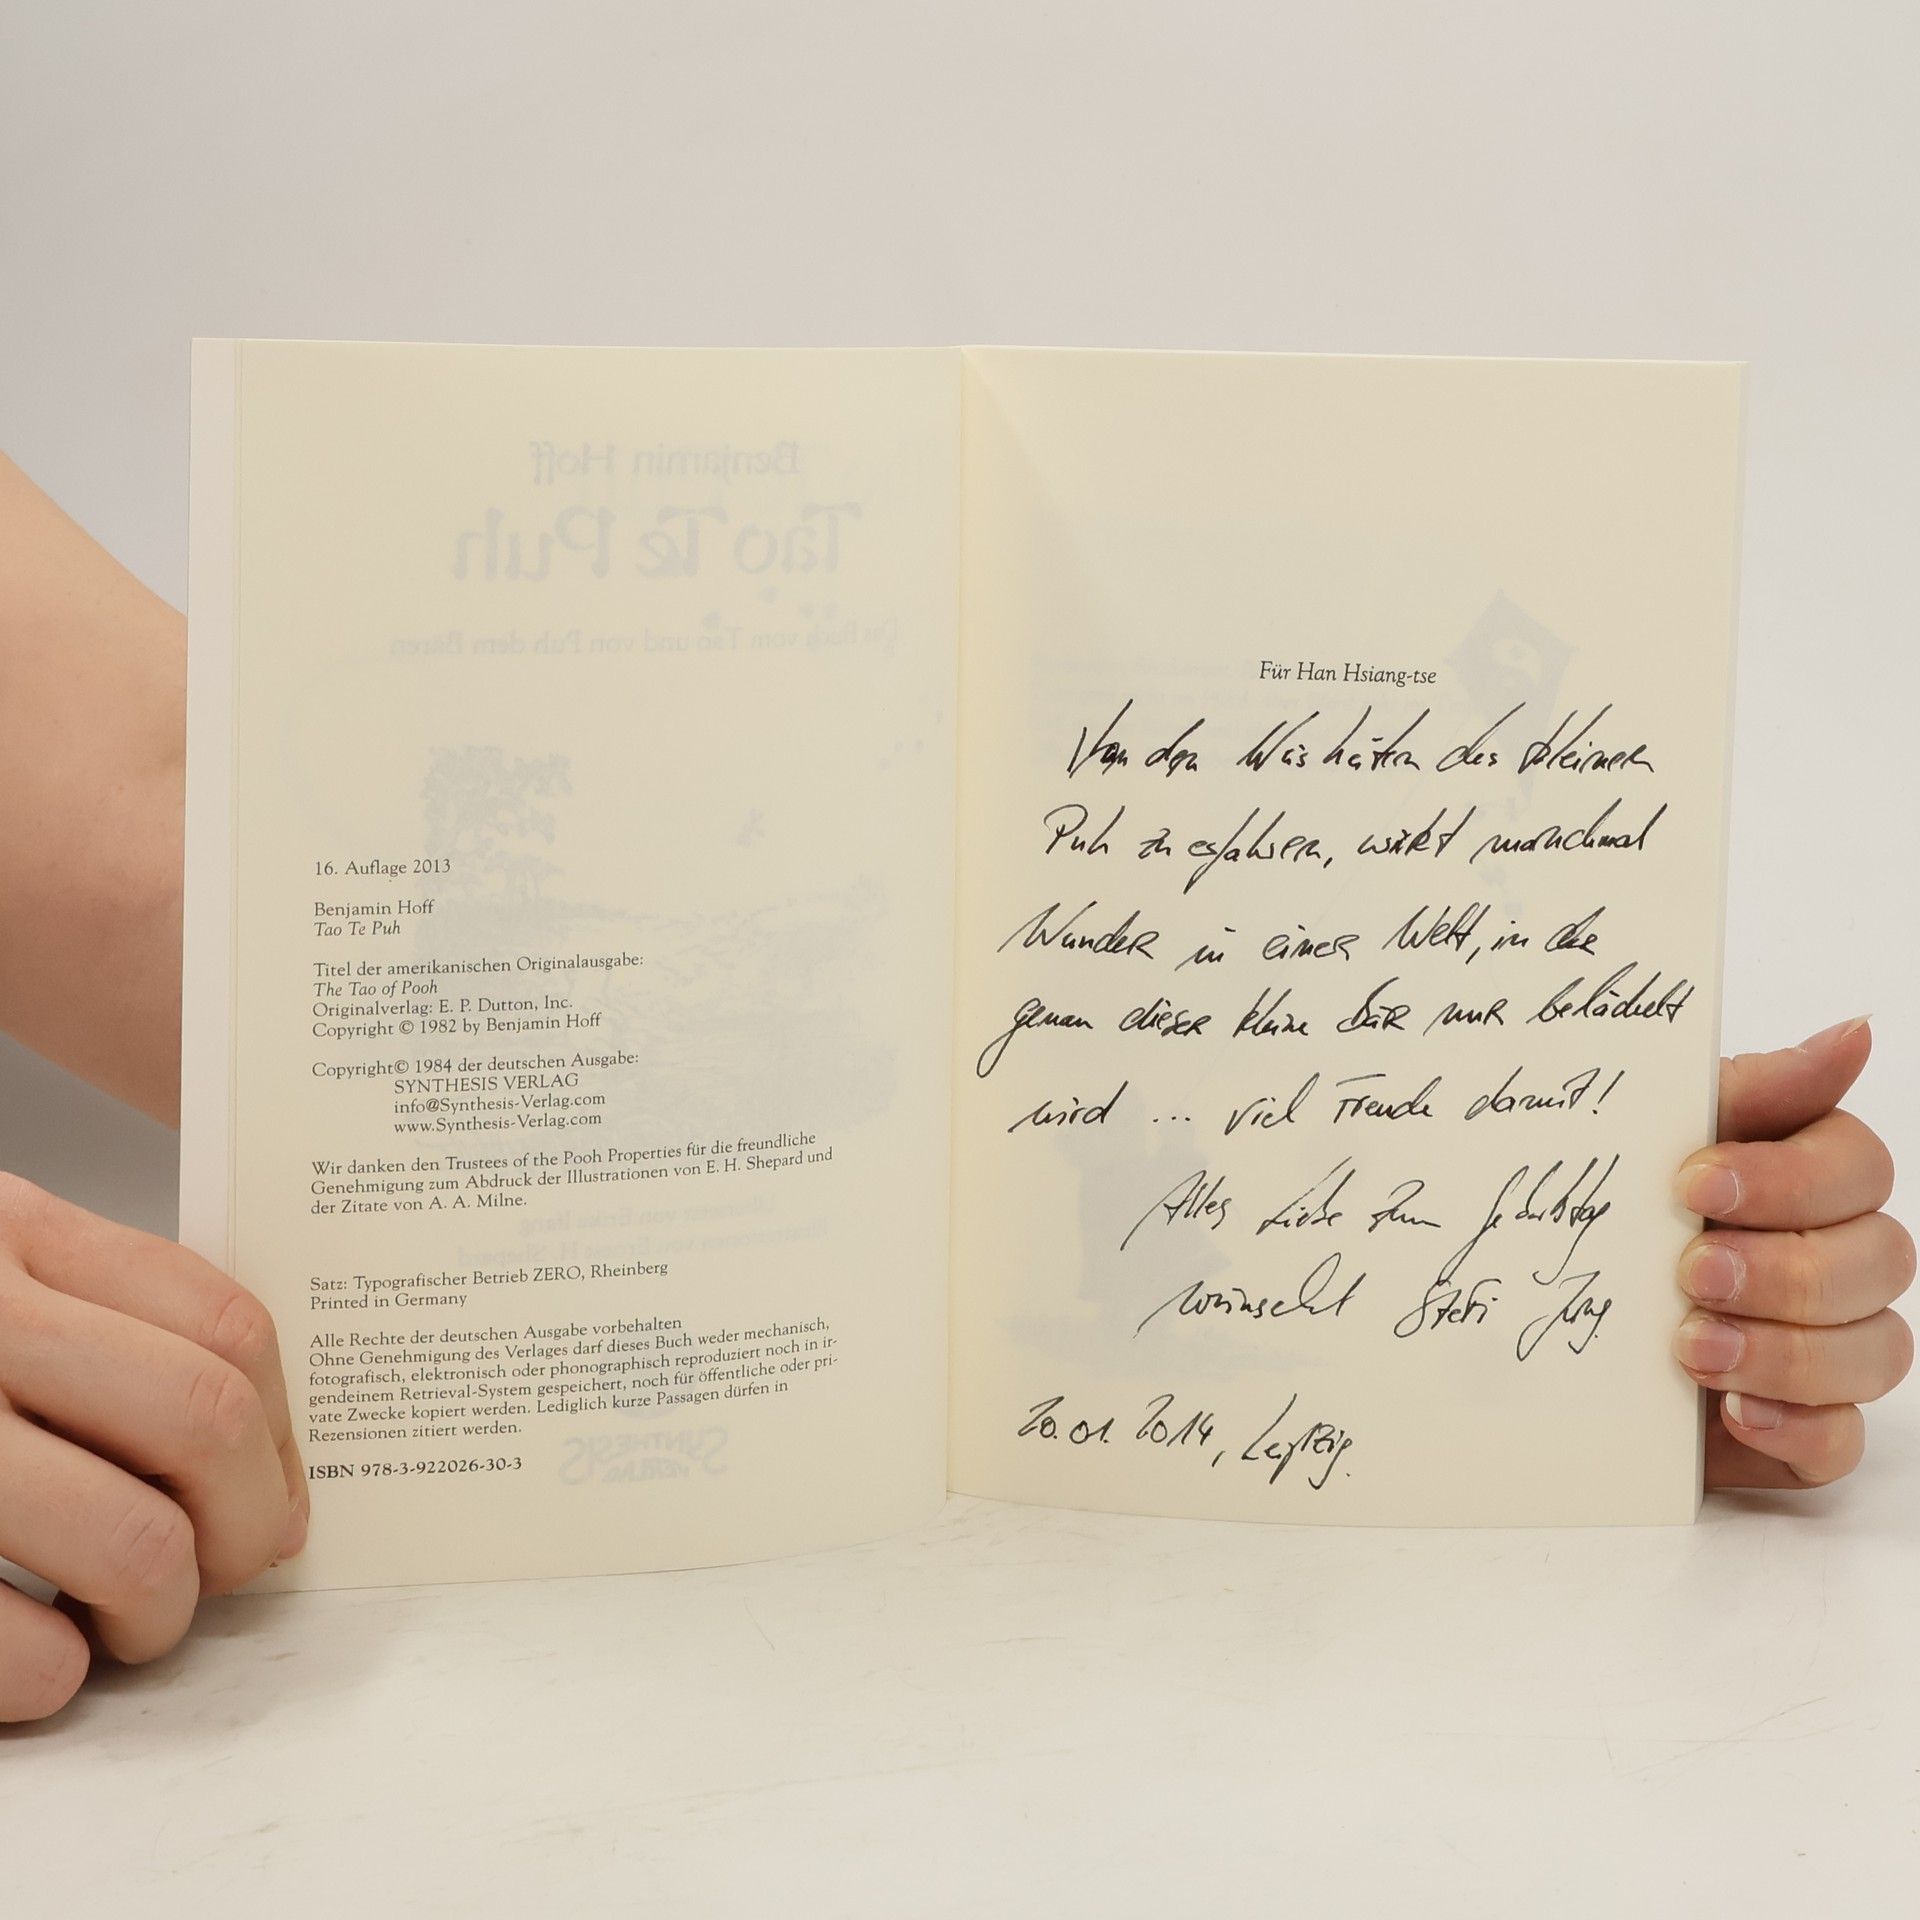 16. Auflage 2013
Benjamin Hoff
Tao Te Puh
Titel der amerikanischen Originalausgabe:
The Tao of Pooh
Originalverlag: E. P. Dutton, Inc.
Copyright © 1982 by Benjamin Hoff
Copyright© 1984 der deutschen Ausgabe:
SYNTHESIS VERLAG
info@Synthesis-Verlag.com
www.Synthesis-Verlag.com
Wir danken den Trustees of the Pooh Properties für die freundliche
Genehmigung zum Abdruck der Illustrationen von E. H. Shepard und
der Zitate von A. A. Milne.
Satz: Typografischer Betrieb ZERO, Rheinberg
Printed in Germany
Alle Rechte der deutschen Ausgabe vorbehalten
Ohne Genehmigung des Verlages darf dieses Buch weder mechanisch,
fotografisch, elektronisch oder phonographisch reproduziert noch in ir-
gendeinem Retrieval-System gespeichert, noch für öffentliche oder pri-
vate Zwecke kopiert werden. Lediglich kurze Passagen dürfen in
Rezensionen zitiert werden.
ISBN 978-3-922026-30-3
Für Han Hsiang-tse
Von den Weisheiten des kleinen
Puh zu erfahren, wirkt manchmal
Wunder in einer Welt, in der
genau dieser kleine Bär nur belächelt
wird ... viel Freude damit!
Alles Liebe zum Geburtstag
wünscht Steffi
20.01.2014, Leipzig.
Benjamin Hoff
Tao Te Puh
Das Buch vom Tao und von Puh dem Bären
SYNTHESIS
VERLAG